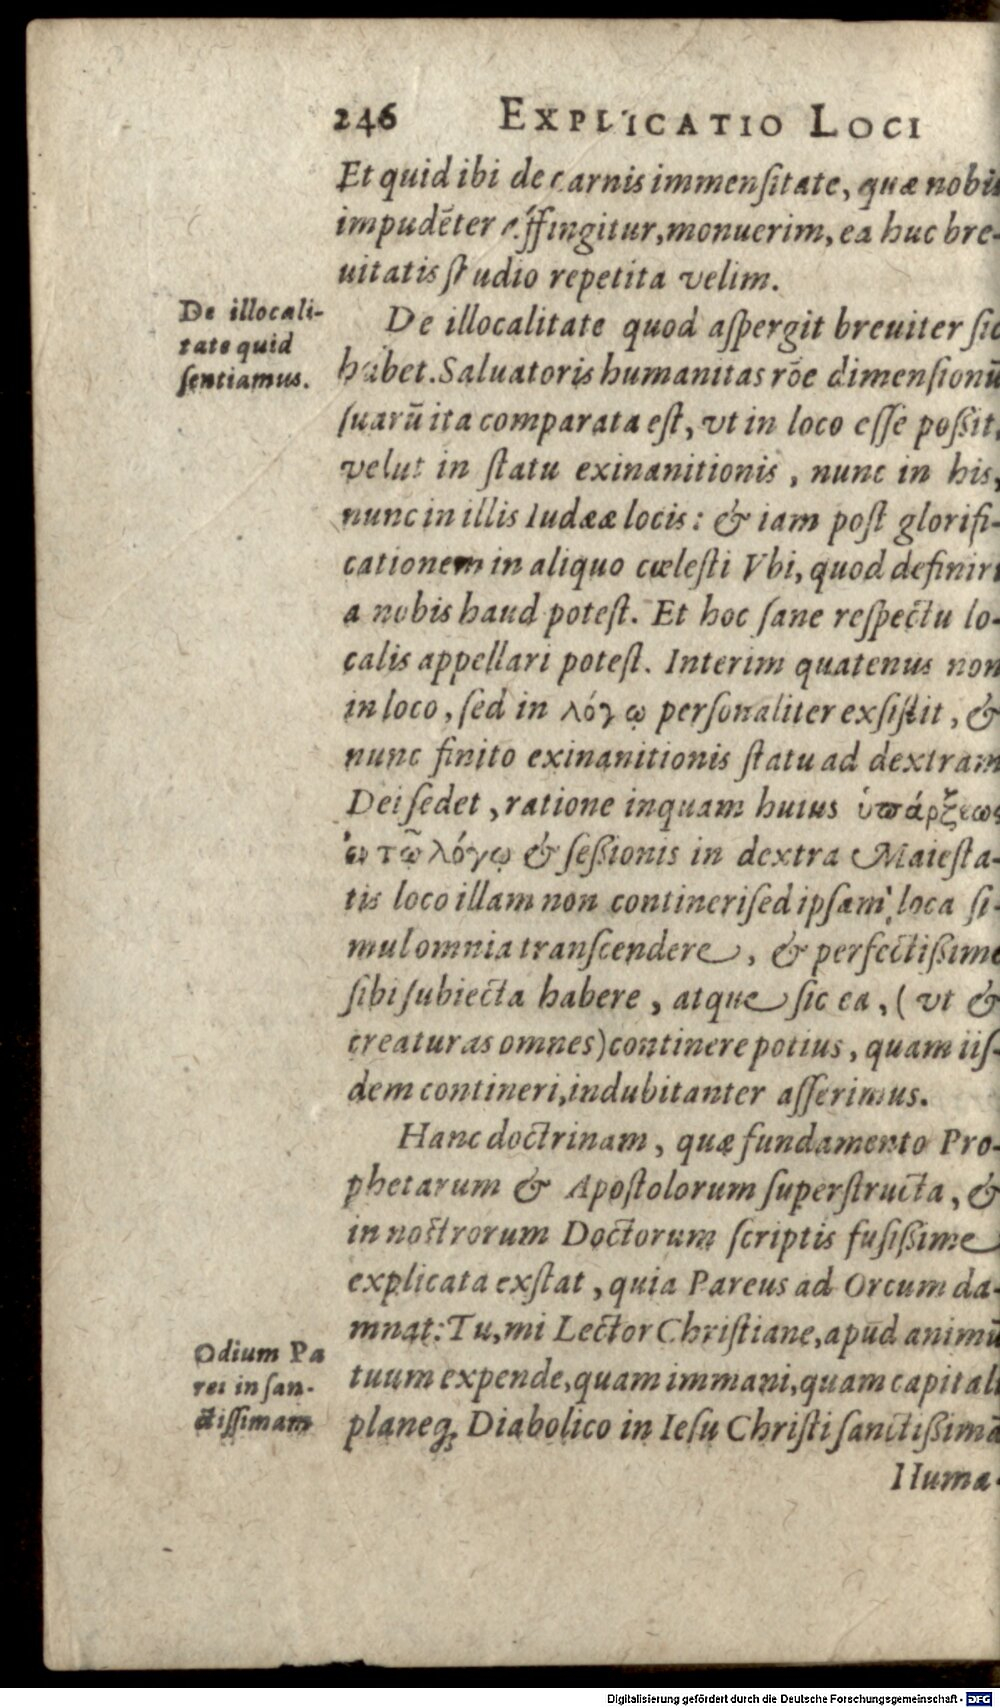 246 EXPLICATIO LOCI
Et quid ibi de carnis immenſitate, quæ nobis
impudēter affingitur, monuerim, ea huc bre-
uitatis ſtudio repetita velim.
De illocali-
tate quid
ſentiamus.
De illocalitate quod aſpergit breuiter ſic
habet. Saluatoris humanitas rōe dimenſionū
ſuarū ita comparata eſt, vt in loco eſſe poßit,
velut in ſtatu exinanitionis, nunc in his,
nunc in illis Iudææ locis: & iam poſt glorifi-
cationem in aliquo cœleſti Vbi, quod definiri
a nobis haud poteſt. Et hoc ſane reſpectu lo-
calis appellari poteſt. Interim quatenus non
in loco, ſed in λόγῳ perſonaliter exſiſtit, &
nunc finito exinanitionis ſtatu ad dextram
Dei ſedet, ratione inquam huius ὑπάρξεως
ἐν τῷ λόγῳ & ſeßionis in dextra Maieſta-
tis loco illam non contineri ſed ipſam loca ſi-
mul omnia tranſcendere, & perfectißime
ſibi ſubiecta habere, atque ſic ea, (vt &
creaturas omnes) continere potius, quam iiſ-
dem contineri, indubitanter aſſerimus.
Hanc doctrinam, quæ fundamento Pro-
phetarum & Apoſtolorum ſuperſtructa, &
in noſtrorum Doctorum ſcriptis fuſißime
explicata exſtat, quia Pareus ad Orcum da-
mnat: Tu, mi Lector Chriſtiane, apud animū
Odium Pa
rei in ſan-
ctiſſimam
tuum expende, quam immani, quam capitali
planeq; Diabolico in Ieſu Chriſti ſanctißimā
Huma-
Digitalisierung gefördert durch die Deutsche Forschungsgemeinschaft - DFG